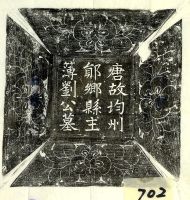 唐故均州
鄖鄉縣主
薄劉公墓
702